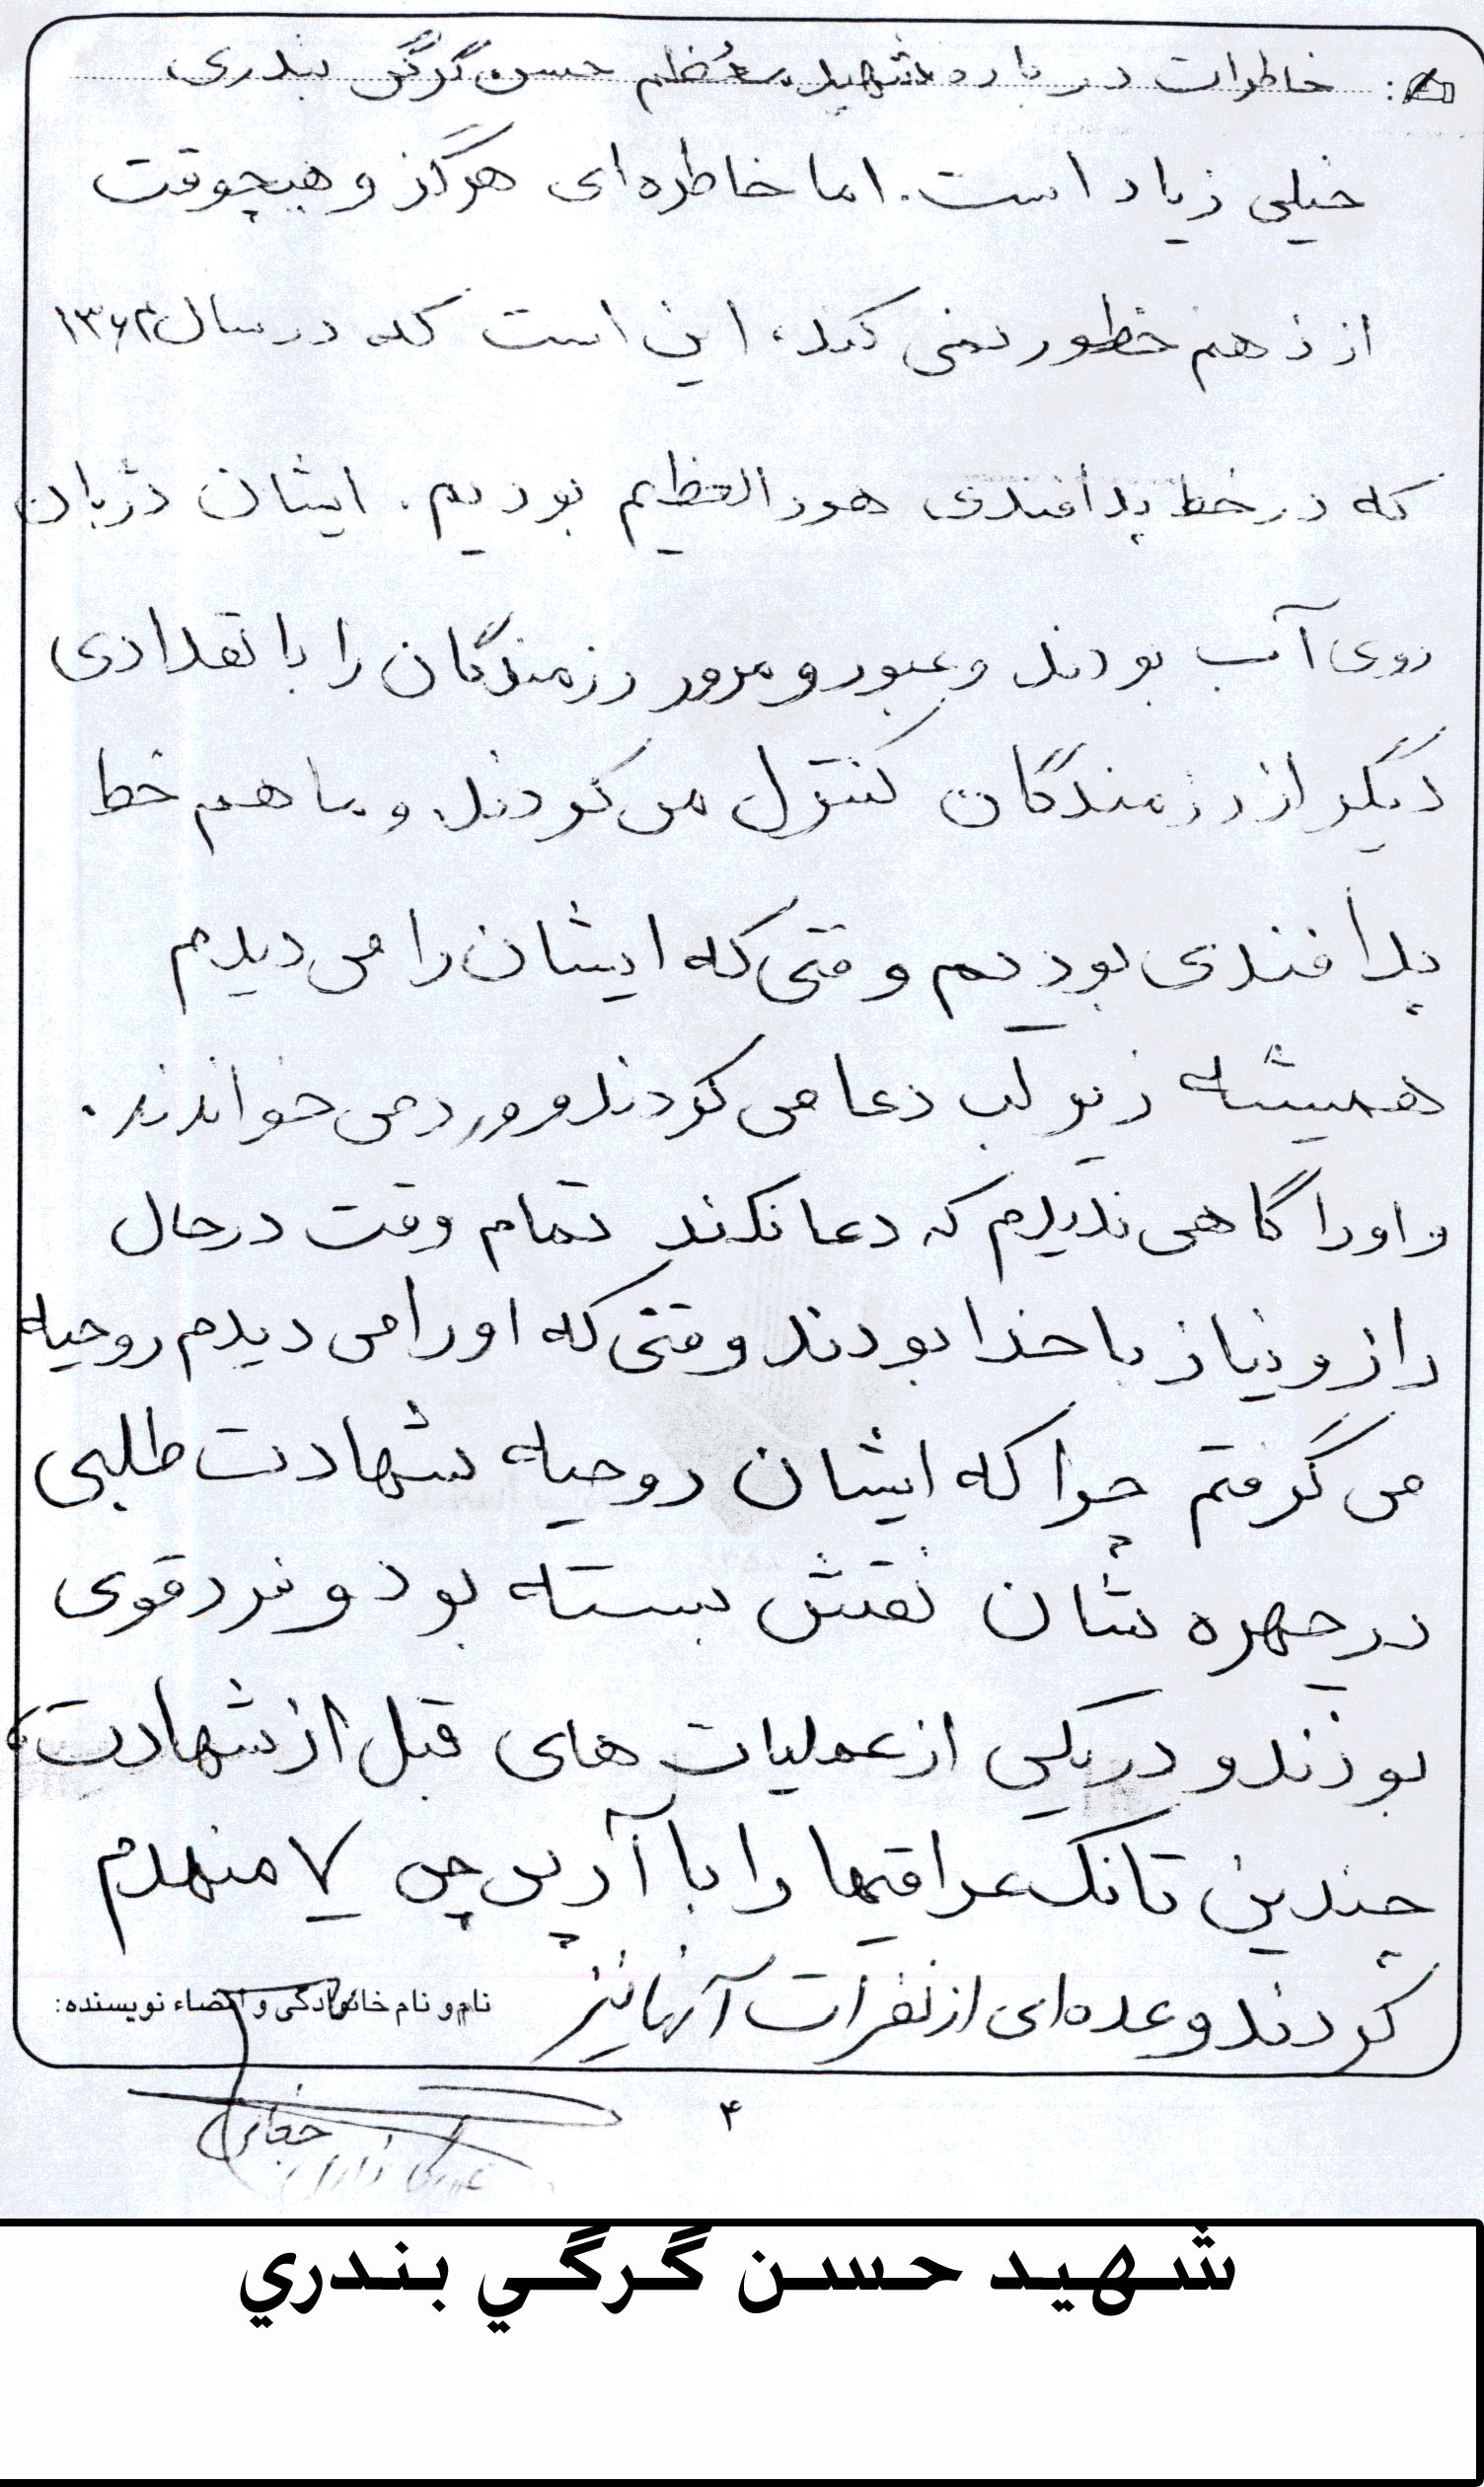 خاطرات درباره شهید معظم حسن گرگی بندری
خیلی زیاد است. اما خاطره‌ای هرگز و هیچوقت
از ذهنم خطور نمی کند، این است که در سال ۱۳۶۲
که در خط پدافندی هورالعظیم بودیم. ایشان دژبان
روی آب بودند و عبور و مرور رزمندگان را با تعدادی
دیگر از رزمندگان کنترل می کردند و ما هم خط
پدافندی بودیم وقتی که ایشان را می دیدم
همیشه زیر لب دعا می کردند و ورد می خواندند.
و او را گاهی ندیدم که دعا نکند تمام وقت در حال
راز و نیاز با خدا بودند وقتی که او را می دیدم روحیه
می گرفتم چرا که ایشان روحیه شهادت طلبی
در چهره شان نقش بسته بود و فرد قوی
بودند و در یکی از عملیات های قبل از شهادت
چندین تانک عراقیها را با آرپی جی ۷ منهدم
کردند و عده‌ای از نفرات آنها نیز
نام و نام خانوادگی و امضاء نویسنده:
۴
شهيد حسن گرگي بندري